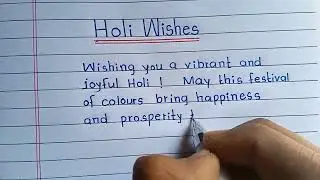 Holi Wishes
Wishing you a vibrant and
joyful Holi ! May this festival
of colours bring happiness
and prosperity